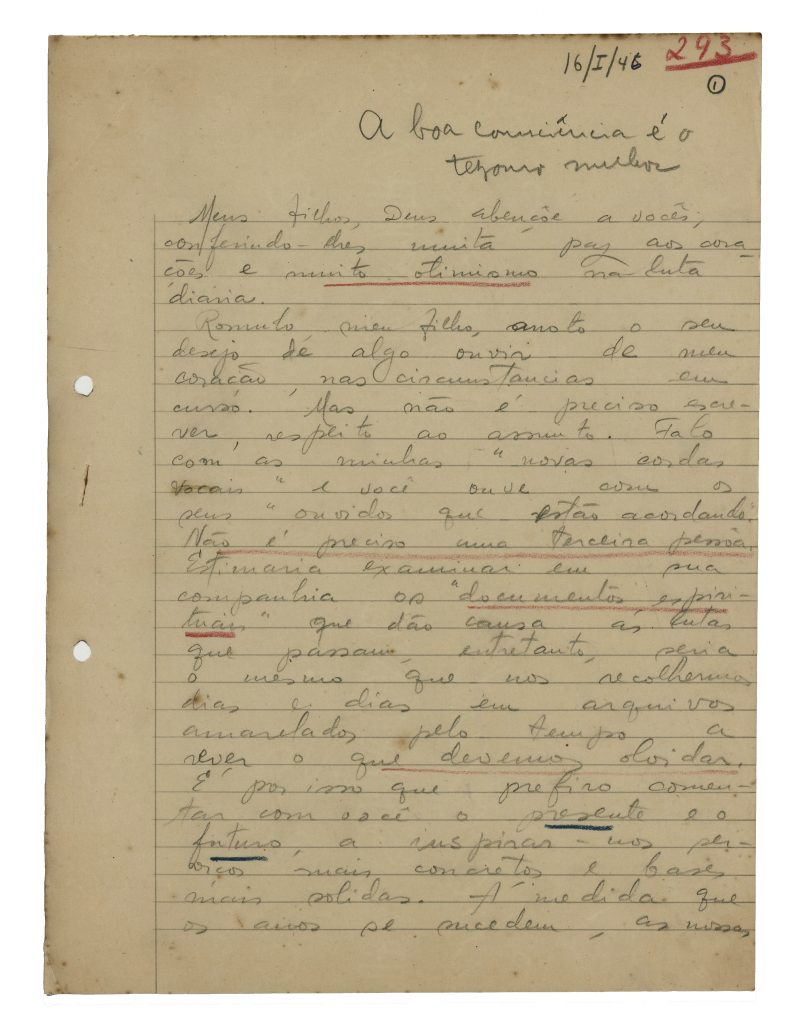 16/I/46 293
1
A boa consciência é o
tezouro melhor
Meus filhos, Deus abençôe a vocês,
conferindo-lhes muita paz aos cora-
ções e muito otimismo na luta
diaria.
Romulo, meu filho, anoto o seu
desejo de algo ouvir de meu
coração, nas circunstancias em
curso. Mas não é preciso escre-
ver, respeito ao assunto. Falo
com as minhas "novas cordas
vocais" e você ouve com os
seus "ouvidos que estão acordando".
Não é preciso uma terceira pessôa.
Estimaria examinar em sua
companhia os "documentos espiri-
tuais" que dão causa ás lutas
que passam, entretanto, seria
o mesmo que nos recolhermos
dias e dias em arquivos
amarelados pelo tempo a
rever o que devemos olvidar.
É por isso que prefiro comen-
tar com você o presente e o
futuro, a inspirar-nos ser-
viços mais concretos e bases
mais solidas. Á medida que
os anos se sucedem, as nossas